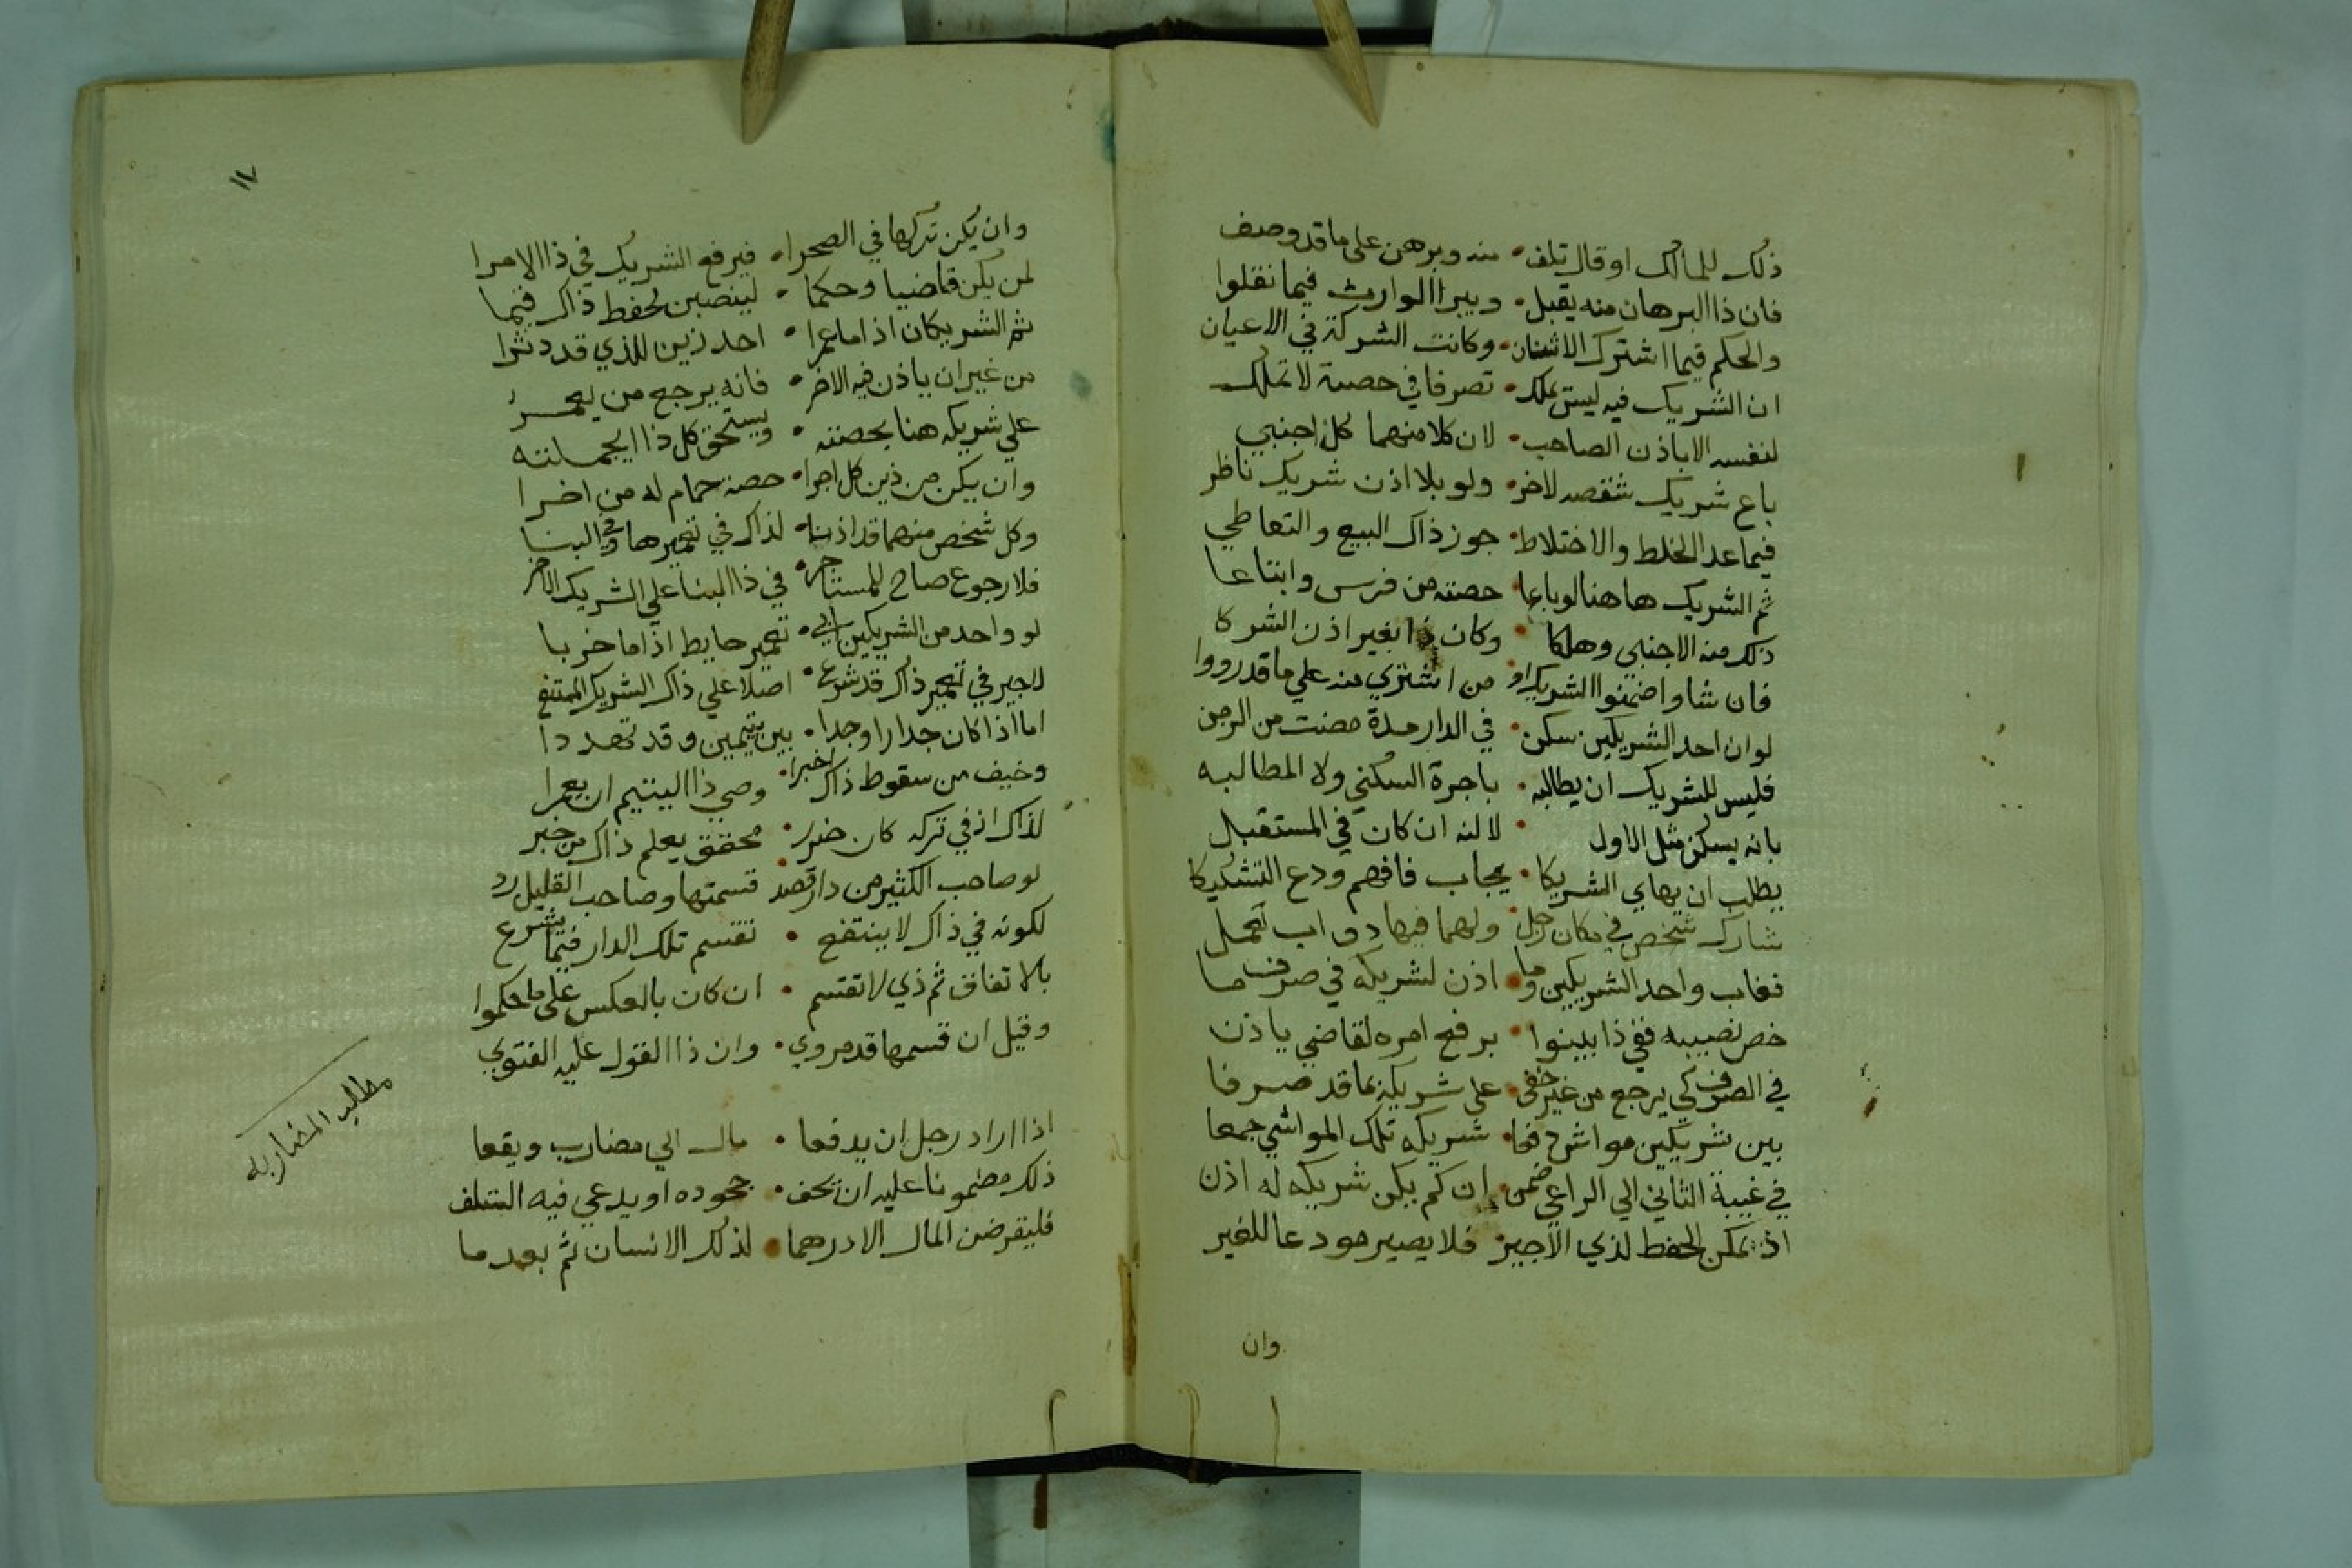 ذلك للمالك او قال تلف • منه وبرهن على ما قد وصف
فان ذا البرهان منه يقبل • ويبرا الوارث فيما نقلوا
والحكم فيما اشترك الاثنان • وكانت الشركة في الاعيان
ان الشريك فيه ليس يملك • تصرفا في حصة لا تملك
لنفسه الا باذن الصاحب • لان كلا منهما كل اجنبي
باع شريك شقصه لاخر • ولو بلا اذن شريك ناظر
فيما عدا الخلط والاختلاط • جوز ذاك البيع والتعاطي
ثم الشريك هاهنا لو باعا • حصته من فرس وابتاعا
ذلك منه الاجنبي وهلكا • وكان ذا بغير اذن الشركا
فان شاوا ضمنوا الشريك او • من اشتري منه علي ما قد رووا
لو ان احد الشريكين سكن • في الدار مدة مضت من الزمن
فليس للشريك ان يطالبه • باجرة السكني ولا المطالبه
بانه يسكن مثل الاول • لالنه ان كان في المستقبل
يطلب ان يهاي الشريكا • يجاب فافهم ودع التشكيكا
شارك شخص في مكان رجل • ولهما فيها دواب تعمل
فغاب واحد الشريكين وما • اذن لشريكه في صرف ما
خص نصيبه ففي ذا بينوا • برفع امره لقاضي ياذن
في الصرف كي يرجع من غير خفى • على شريكه بما قد صرفا
بين شريكين مواش دفعا • شريكه تلك المواشي جمعا
في غيبة الثاني الي الراعي ضمن • ان لم يكن شريكه له اذن
اذ يمكن الحفظ لذي الاجير • فلا يصير مودعا للغير
وان
١٧
وان يكن تركها في الصحرا • فيرفع الشريك في ذا الامرا
لمن يكن قاضيا وحكما • لينصبن لحفظ ذاك قيما
ثم الشريكان اذا ما عمرا • احد زين للذي قد دثرا
من غير ان ياذن فيه الاخر • فانه يرجع من يعمر
علي شريكه هنا بحصته • ويستحق كل ذا
وان يكن من ذين كل اجرا • حصة حمام له من اخرا
وكل شخص منهما قد اذنا • لذاك في تعميرها وفي البنا
فلا رجوع صاح للمستاجر • في ذا البنا علي الشريك الاخر
لو واحد من الشريكين ابي • تعمير حايط اذا ما خربا
لا جبر في تعمير ذاك قد شرع • اصلا علي ذاك الشريك الممتنع
اما اذا كان جدارا وجدا • بين يتيمين وقد تهددا
وخيف من سقوط ذاك اجبرا • وصي ذا اليتيم ان يعمرا
لذاك اذ في تركه كان ضرر • محقق يعلم ذاك من خبر
لو صاحب الكثير من دار قصد • قسمتها وصاحب القليل رد
لكونه في ذاك لا ينتفع • تقسم تلك الدار فيما يشرع
بالاتفاق ثم ذي لا تقتسم • ان كان بالعكس على ما حكموا
وقيل ان قسمها قد مروي • وان ذا القول عليه الفتوي
مطالب المضاربه
اذا اراد رجل ان يدفعا • مال الي مضارب ويقعا
ذلك مضمونا عليه ان يخف • جحوده او يدعي فيه التلف
فليقرضن المال الا درهما • لذلك الانسان ثم بعد ما